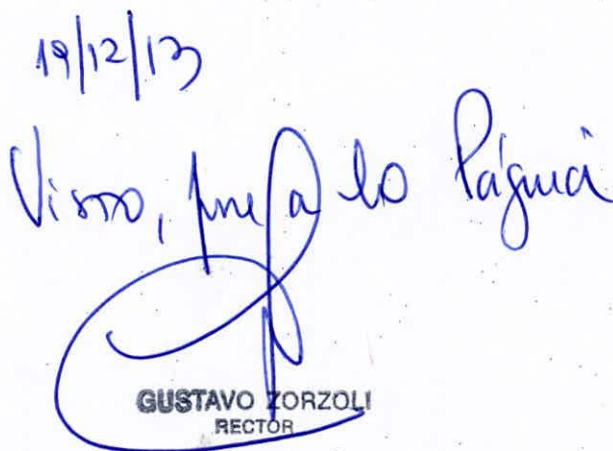 19/12/13
Visto, pase a la Página
GUSTAVO ZORZOLI
RECTOR